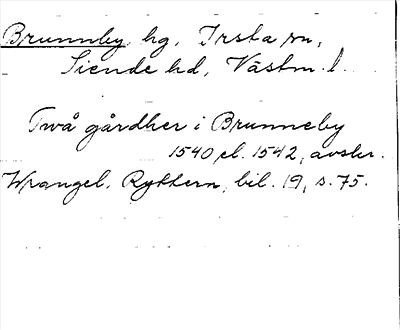 Brunnby, hg, Irsta sn,
Siende hd, Västm. l.
Två gårdher i Brunneby
1540 el. 1542, avskr.
Wrangel, Ryttern, bil. 19, s. 75.